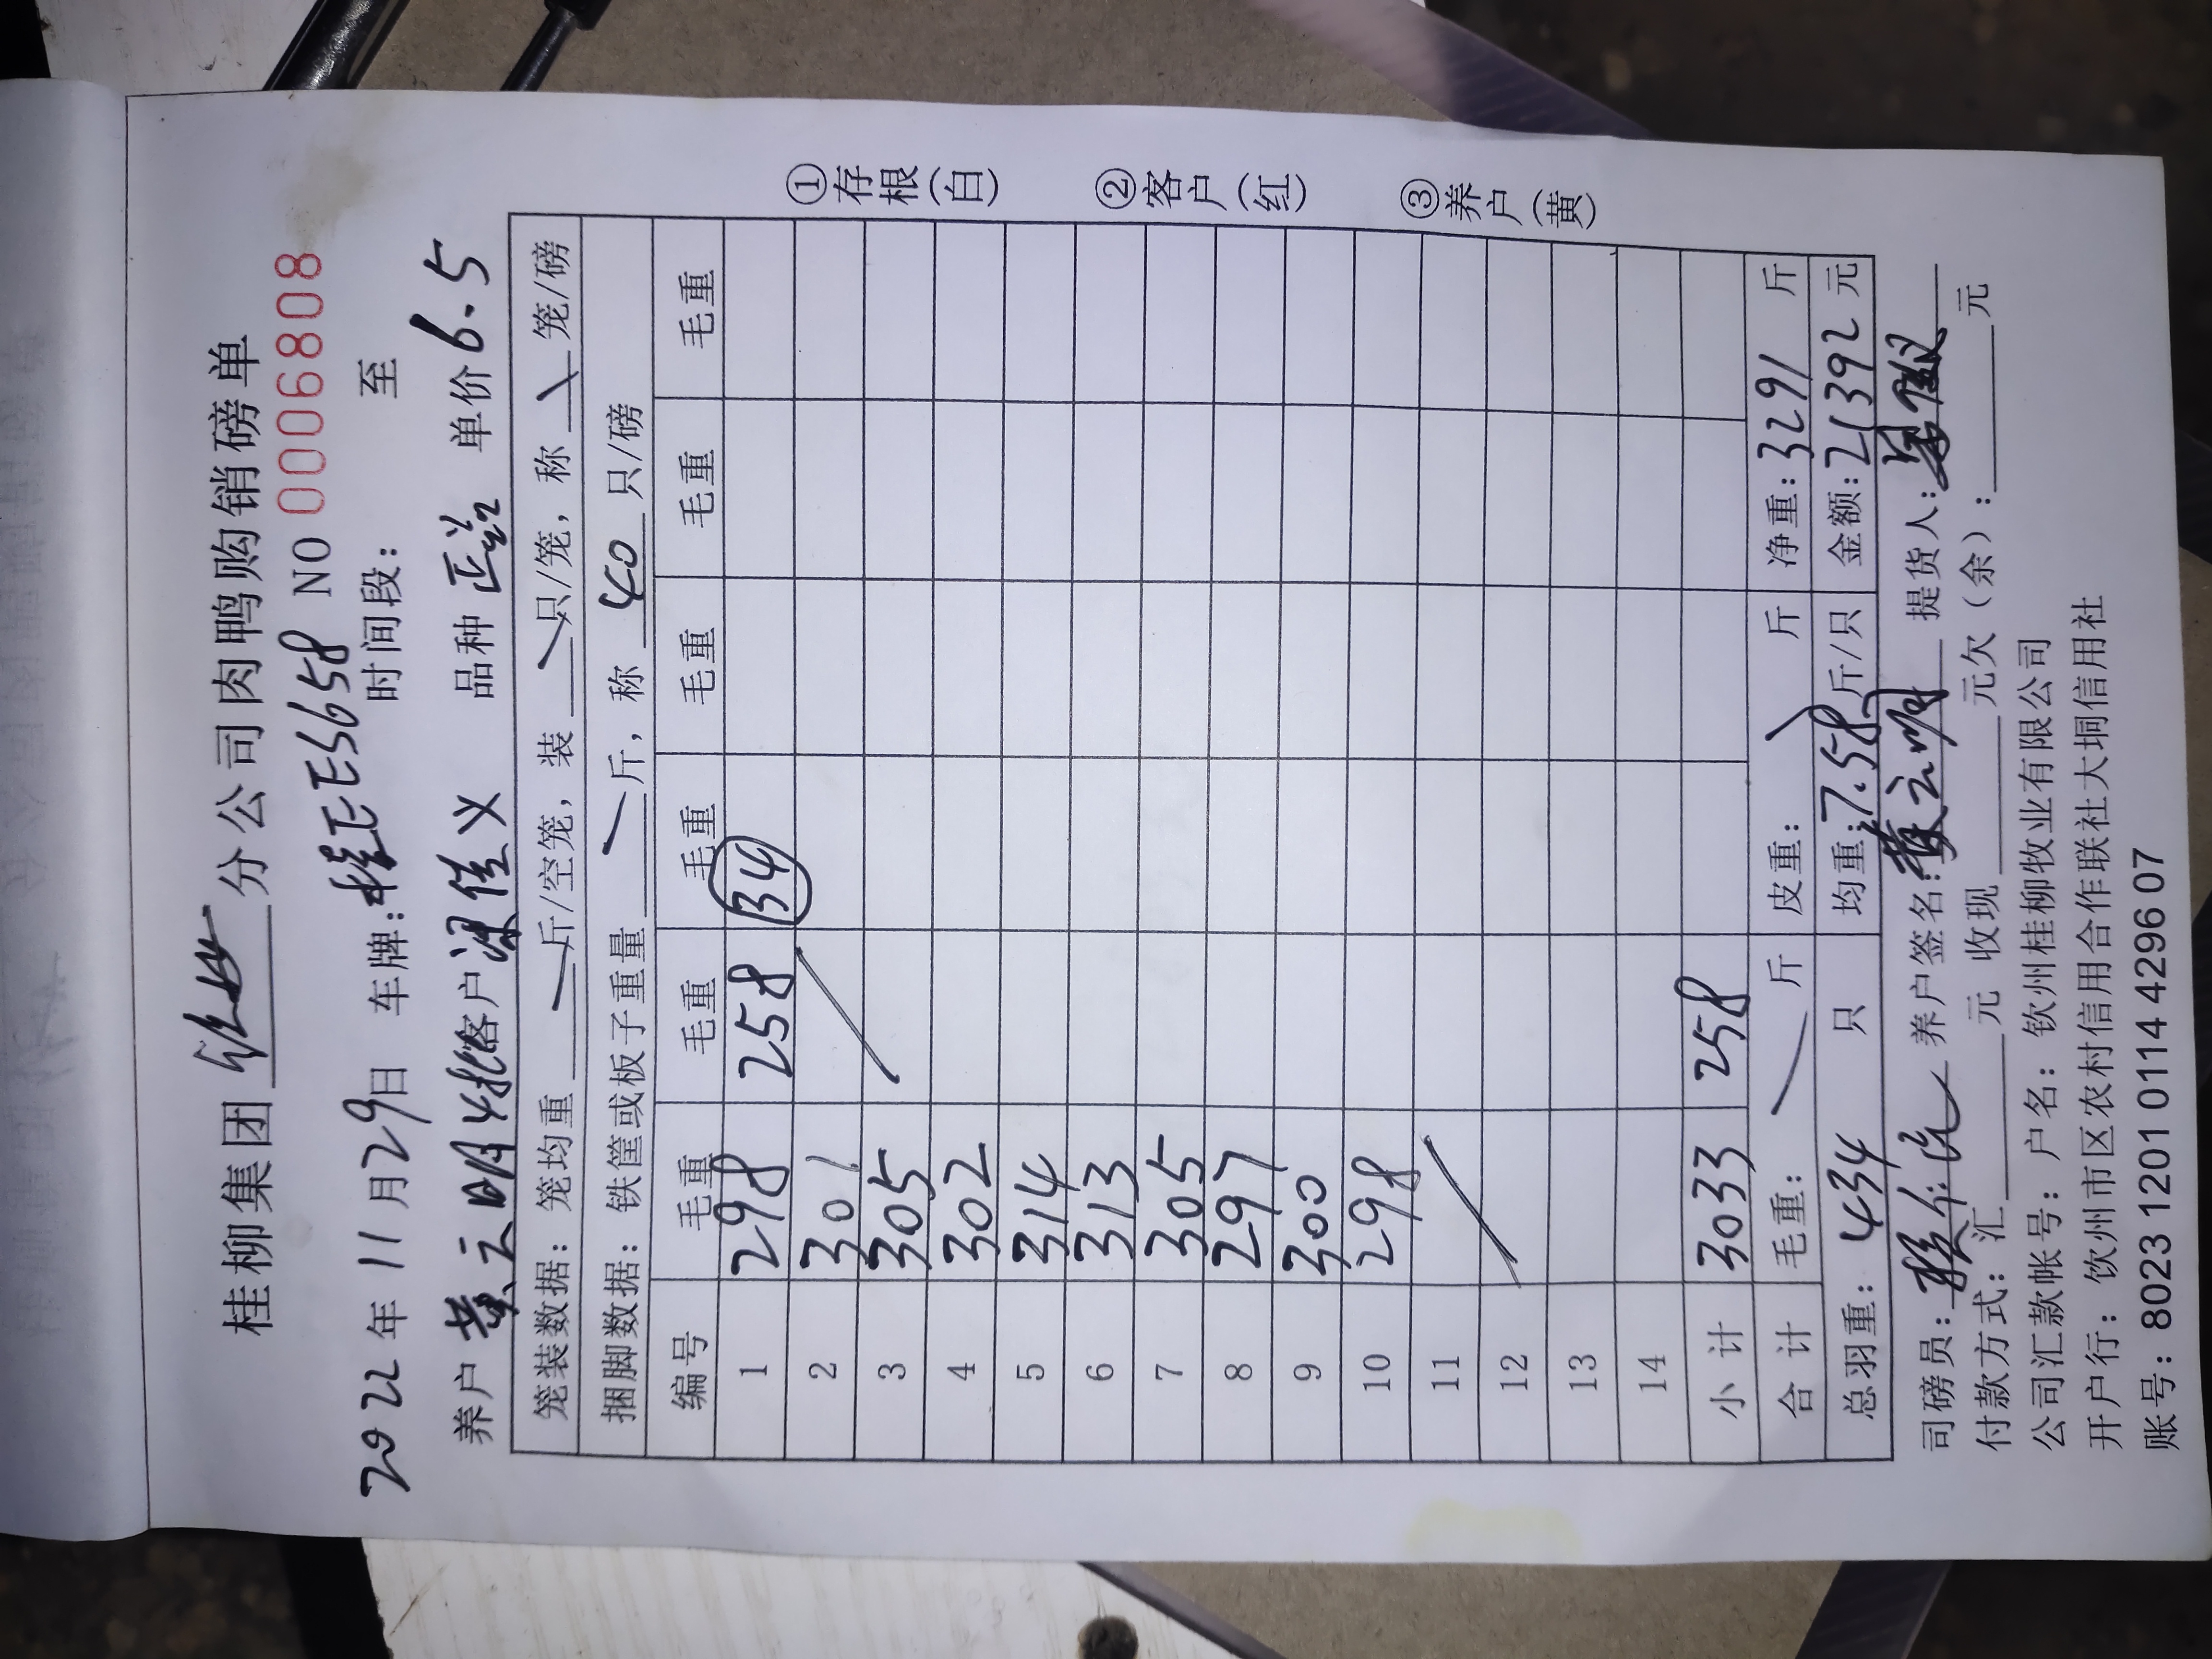 桂柳集团 钦州 分公司肉鸭购销磅单
2022年11月29日 车牌:桂EE5658 NO 0006808
时间段: 至
养户 黄云明4批 客户 梁佳义 品种 正芝 单价 6.5
笼装数据: 笼均重 斤/空笼, 装 只/笼, 称 笼/磅
捆脚数据: 铁筐或板子重量 斤, 称 40 只/磅
编号 毛重 毛重 毛重 毛重 毛重 毛重
1 298 258 34
2 301
3 305
4 302
5 314
6 313
7 305
8 297
9 300
10 298
11
12
13
14
小计 3033 258
合计 毛重: 斤 皮重: 斤 净重: 3291 斤
总羽重: 434 只 均重: 7.58 斤/只 金额: 21392 元
司磅员: 养户签名: 黄云明 提货人:
付款方式: 汇 元 收现 元欠(余): 元
公司汇款帐号: 户名: 钦州桂柳牧业有限公司
开户行: 钦州市区农村信用合作联社大垌信用社
账号: 8023 1201 0114 4296 07
①存根(白)
②客户(红)
③养户(黄)